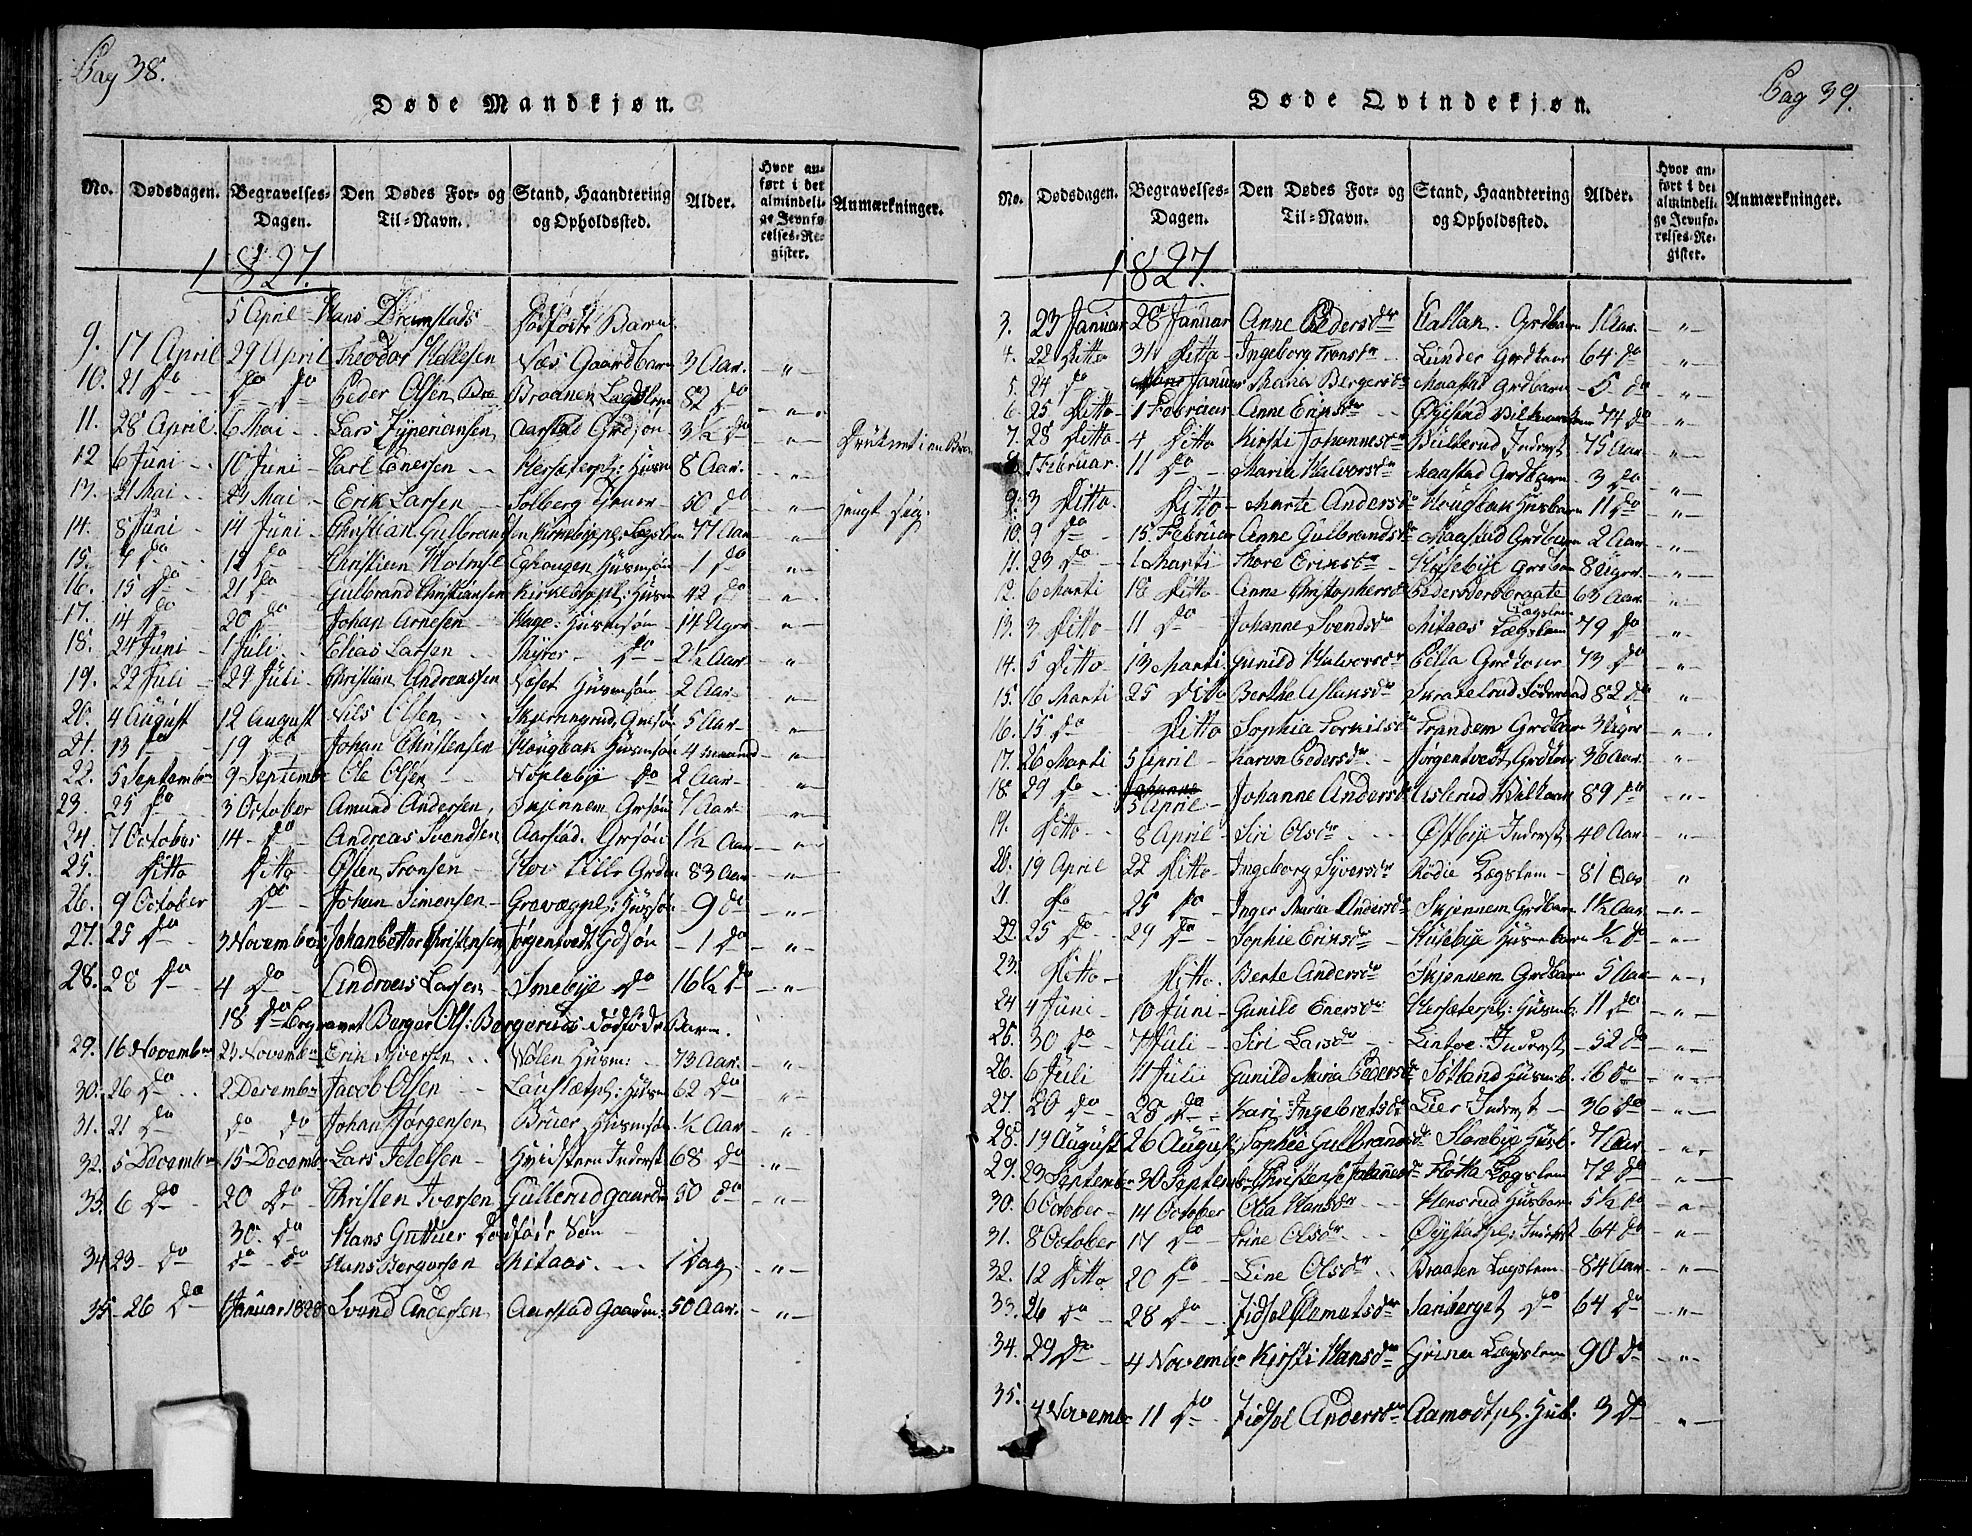 Pag 38.
Døde Mandkjøn.
No. Dødsdagen. Begravelses-Dagen. Den Dødes For- og Til-Navn. Stand, Haandtering og Opholdssted. Alder. Hvor anført i det almindelige Jevnførelses-Register. Anmærkninger.
1827.
5 April Hans Dramstads dødfødte Barn
9. 17 April 29 April Theodor Hellesen Næs Gaardbarn 3 Aar. — " —
10. 21 do do do Peder Olsen Braanen Lægdslem 82 do — " —
11. 28 April. 6 Mai Lars Zypriansen Aarstad Grdsøn 3½ do — " —
12 6 Juni 10 Juni Carl Enersen Hersæterpl: Husm 8 Aar. — " — Druknet i en Brøn
13. 21 Mai 23 Mai Erik Larsen Solberg 50 do — " — hengt sig.
14. 8 Juni 14 Juni Christian Gulbrandsen Kirkebyepl. Lægslem 77 Aar — " —
15. 7 do 12 do Christian Holmsl Eghougen Husmsøn 1 do — " —
16. 15 do 21 do Gulbrand Christiansen Kirkebyepl: Husm 42 do — " —
17. 14 do 20 do Johan Arnesen Hage: Husmsøn 14 Uger — " —
18. 24 Juni 1 Juli Elias Larsen Thyrer do 2½ Aar — " —
19. 22 Juli 29 Juli Christian Andreassen Næset Husmsøn 2 Aar — " —
20. 4 August 12 August Nils Olsen Skjerringrud Grdsøn 5 Aar — " —
21. 13 do 19 do Johan Christensen Hougbak Husmsøn 4 maaned — " —
22. 5 Septembr 9 Septembr Ole Olsen Nøklebye do 2 Aar — " —
23. 25 do 3 October Amund Andersen Skjennem Grsøn 7 Aar — " —
24. 7 October 14 do Andreas Svendsen Aarstad. Grsøn 1½ Aar — " —
25. Ditto Ditto Østen Tronsen Hov Lille Grdm 83 Aar — " —
26. 9 October do Johan Simensen Grevægpl: Hussøn 9 do — " —
27. 25 do 3 November Johan Petter Christensen Jørgentvedt Gdsøn 1 do — " —
28. 28 do 4 do Andreas Larsen Smebye do 16½ do — " —
18 do Begravet Berger Ols: Bergeruds dødfødte Barn.
29. 16 Novembr 25 Novembr Erik Syversen Nølen Husm: 73 Aar. — " —
30. 26 do 2 Decembr Jacob Olsen Laufsætpl: Husm 62 do — " —
31. 21 do do do Johan Jørgensen Bruer Husmsøn ½ Aar — " —
32. 5 Decembr 15 Decembr Lars Tetelsen Hvidsteen Inderst 68 do — " —
33. 6 do 20 do Christen Iversen Gullerud gaardm 50 do — " —
30. do Hans Guttuer Dødfødt Søn
34 23 do do do Hans Bergersen Mitaas 1 Dag — " —
35 26 do 1 Januar 1828 Svend Andersen Aarstad Gaardm: 50 Aar. — " —
Pag 39.
Døde Qvindekjøn.
No. Dødsdagen. Begravelses-Dagen. Den Dødes For- og Til-Navn. Stand, Haandtering og Opholdssted. Alder. Hvor anført i det almindelige Jevnførelses-Register. Anmærkninger.
1827.
3. 23 Januar 28 Januar Anne Pedersdr Callak. Grdbarn 1 Aar — " —
4. 22 Ditto 31 Ditto Ingeborg Tronsdr Lunder Grdkone 64 do — " —
5. 24 do Januar Maria Bergersdr Maastad Grdbarn 5 do — " —
6. 25 Ditto 1 Februar Anne Eriksdr Øystad 74 do — " —
7. 28 Ditto 4 Ditto Kirsti Johannesdr Bullerud Inderst 75 Aar — " —
8. 1 Februar. 11 do Maria Halvorsdr Maastad Grdbarn 3 do — " —
9. 3 Ditto Ditto Marte Andersdr Hougbak Husbarn 11 do — " —
10. 9 do 15. Februar Anne Gulbrandsdr Maastad Grdbarn 2 Aar — " —
11. 23 do 1 Marti Thore Eriksdr Husebye Grdbarn 8 Uger — " —
12. 6 Marti 18 Ditto Anne Christophersdr Pedersbraate Lægslem 63 Aar — " —
13. 3 Ditto 11 do Johanne Svendsdr Mitaas Lægslem 79 do — " —
14. 5 Ditto 13 Marti Gunild Halvorsdr Pella Grdkone 73 do — " —
15. 16 Marti 25 Ditto Berthe Aslaksdr Skratelrud Føderaad 82 do — " —
16. 15 do Ditto Sophia Torkilsdr Trandem Grdbarn 3 Uger — " —
17. 26 Marti 5 April Karen Pedersdr Jørgentvedt Grdkone 36 Aar — " —
18. 29 do 5 April Johanne Andersdr Aslerud 89 do — " —
19. Ditto 8 April Siri Olsdr Østbye Inderst 40 Aar — " —
20. 19 April 22 Ditto Ingeborg Syversdr Rødie Lægslem 81 Aar "
21. do 25 do Inger Maria Andersdr Skjennem Grdbarn 1½ Aar — " —
22 25 do 29 do Sophie Eriksdr Husebye Husmbarn ½ do — " —
23. Ditto Ditto. Berte Andersdr Skjennem Grdbarn 5 Aar — " —
24 4 Juni 10 Juni Gunild Enersdr Hersæterpl: Husmb: 11 do — " —
25. 30 do 7 Juli Siri Larsdr Lintoe Inderst 52 do — " —
26. 6 Juli 11 Juli Gunild Maria Pedersdr Sotland Husmb. 16 do — " —
27. 20 do 28 do Kari Ingebretsdr Lier Inderst 36 do — " —
28. 19 August 26 August Sophie Gulbrandsdr Slorebye Husb. 7 Aar — " —
29. 23 Septembr 30 Septembr Christense Johannesdr Fløtta Lægslem 72 do — " —
30. 6 October 14 October Olia Hansdr Hensrud Husbarn 5½ do — " —
31. 8 October 17 do Trine Olsdr Øystadpl: Inderst 64 do — " —
32. 12 Ditto 20 do Line Olsdr Braaten Lægslem 84 Aar — " —
33. 26 do 28 do Zidsel Clemetsdr Sariberget do 64 do — " —
34. 29 do 4 Novembr Kirsti Hansdr Griner Lægdslem 90 do — " —
35. 4 Novembr 11 do Zidsel Andersdr Aamodtpl: Husb: 3 do — " —